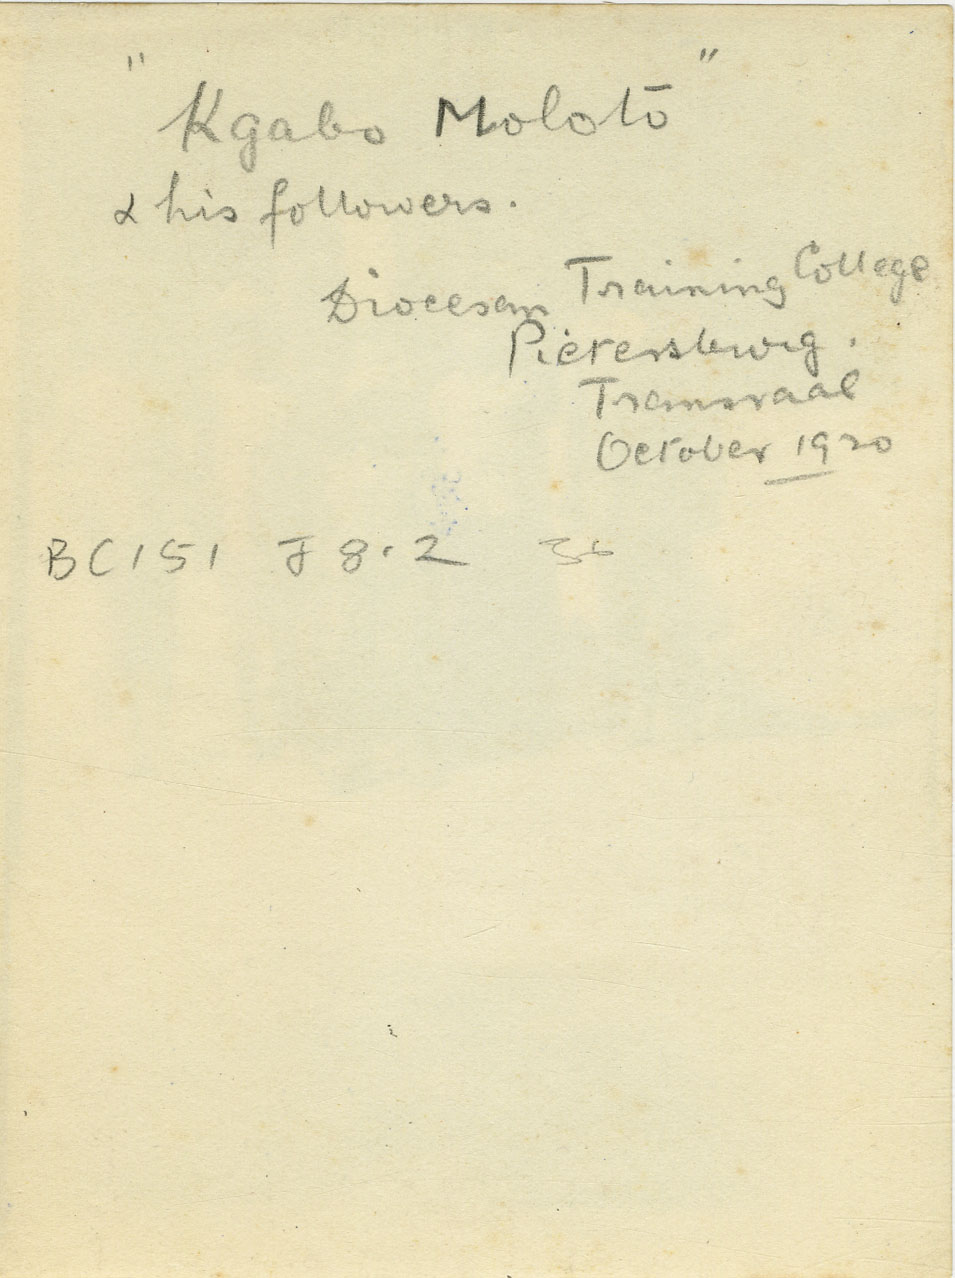 "Kgabo Moloto"
& his followers.
Diocesan Training College
Pietersburg.
Transvaal
October 1920
BC151 J8.2 36